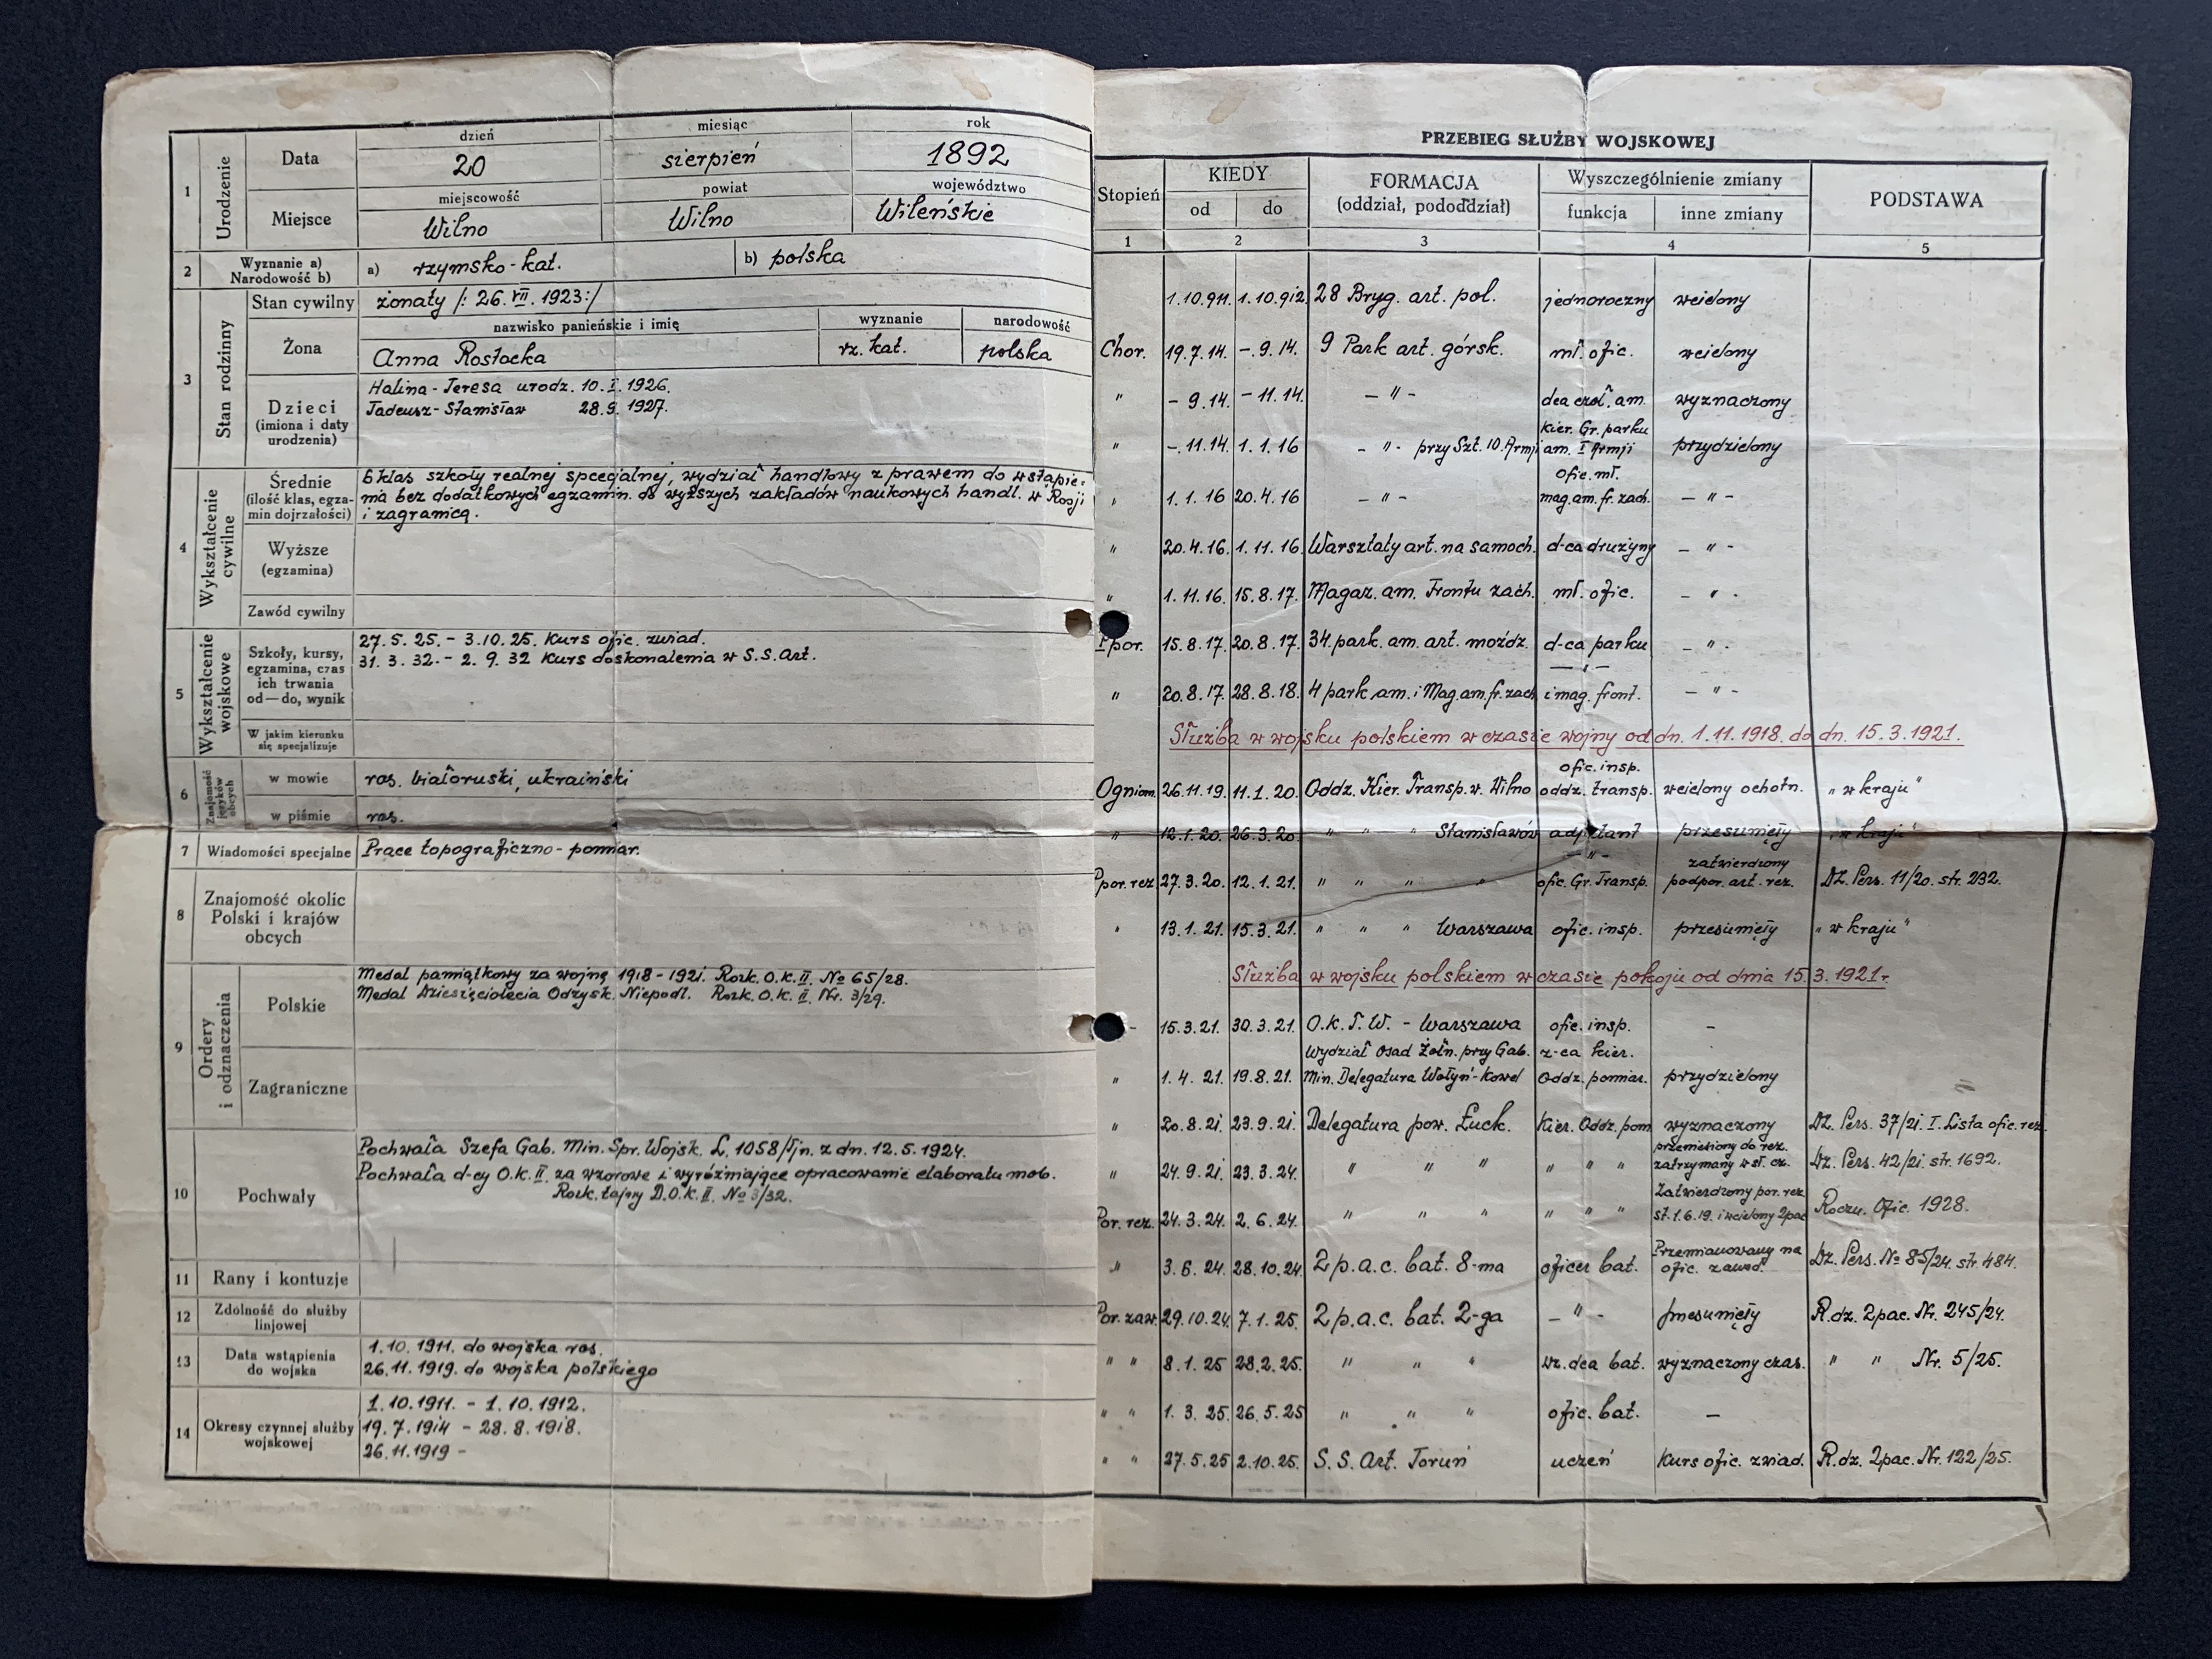 dzień miesiąc rok
1 Urodzenie Data 20 sierpień 1892
miejscowość powiat województwo
Miejsce Wilno Wilno Wileńskie
2 Wyznanie a) Narodowość b) a) rzymsko-kat. b) polska
3 Stan rodzinny Stan cywilny żonaty /: 26. VII. 1923:/
nazwisko panieńskie i imię wyznanie narodowość
Żona Anna Rostocka rz. kat. polska
Dzieci (imiona i daty urodzenia)
Halina-Teresa urodz. 10. I. 1926.
Tadeusz-Stanisław 28. 9. 1927.
4 Wykształcenie cywilne Średnie (ilość klas, egzamin dojrzałości)
6 klas szkoły realnej specjalnej, wydział handlowy z prawem do wstąpie-
nia bez dodatkowych egzamin. do wyższych zakładów naukowych handl. w Rosji
i zagranicą.
Wyższe (egzamina)
Zawód cywilny
5 Wykształcenie wojskowe Szkoły, kursy, egzamina, czas ich trwania od—do, wynik
27. 5. 25. - 3. 10. 25. Kurs ofic. zwiad.
31. 3. 32. - 2. 9. 32 Kurs doskonalenia w S.S. Art.
W jakim kierunku się specjalizuje
6 Znajomość języków obcych w mowie ros. białoruski, ukraiński
w piśmie ros.
7 Wiadomości specjalne Prace topograficzno-pomiar.
8 Znajomość okolic Polski i krajów obcych
9 Ordery i odznaczenia Polskie
Medal pamiątkowy za wojnę 1918-1921. Rozk. O.K. II. № 65/28.
Medal Dziesięciolecia Odzysk. Niepodl. Rozk. O.K. II. Nr. 3/29.
Zagraniczne
10 Pochwały
Pochwała Szefa Gab. Min. Spr. Wojsk. L. 1058/Tjn. z dn. 12. 5. 1924.
Pochwała d-cy O.K. II. za wzorowe i wyróżniające opracowanie elaboratu mob.
Rozk. tajny D.O.K. II. № 3/32.
11 Rany i kontuzje
12 Zdolność do służby linjowej
13 Data wstąpienia do wojska
1. 10. 1911. do wojska ros.
26. 11. 1919. do wojska polskiego
14 Okresy czynnej służby wojskowej
1. 10. 1911. - 1. 10. 1912.
19. 7. 1914 - 28. 8. 1918.
26. 11. 1919 -
PRZEBIEG SŁUŻBY WOJSKOWEJ
Stopień KIEDY FORMACJA (oddział, pododdział) Wyszczególnienie zmiany PODSTAWA
od do funkcja inne zmiany
1 2 3 4 5
1. 10. 911. 1. 10. 912 28 Bryg. art. pol. jednoroczny wcielony
Chor. 19. 7. 14. -. 9. 14. 9 Park art. górsk. mł. ofic. wcielony
" - 9. 14. - 11. 14. - " - dca czoł. am. wyznaczony
" -. 11. 14 1. 1. 16 - " - przy Szt. 10. Armji kier. Gr. parku am. I Armji przydzielony
" 1. 1. 16 20. 4. 16 - " - ofic. mł. mag. am. fr. zach. - " -
" 20. 4. 16. 1. 11. 16. Warsztaty art. na samoch. d-ca drużyny - " -
" 1. 11. 16. 15. 8. 17. Magaz. am. Frontu zach. mł. ofic. - " -
Ppor. 15. 8. 17. 20. 8. 17. 34 park. am. art. moźdz. d-ca parku - " -
" 20. 8. 17. 28. 8. 18. 4 park am. i Mag. am. fr. zach. - " - i mag. front. - " -
Służba w wojsku polskiem w czasie wojny od dn. 1. 11. 1918. do dn. 15. 3. 1921.
Ogniom. 26. 11. 19. 11. 1. 20. Oddz. Kier. Transp. w. Wilno ofic. insp. oddz. transp. wcielony ochotn. „w kraju"
" 12. 1. 20. 26. 3. 20. " " " Stanisławów adjutant przesunięty „w kraju"
Ppor. rez. 27. 3. 20. 12. 1. 21. " " " " - " - ofic. Gr. Transp. zatwierdzony podpor. art. rez. Dz. Pers. 11/20. str. 232.
" 13. 1. 21. 15. 3. 21. " " " Warszawa ofic. insp. przesunięty „w kraju"
Służba w wojsku polskiem w czasie pokoju od dnia 15. 3. 1921 r.
- 15. 3. 21. 30. 3. 21. O.K.T.W. - Warszawa ofic. insp. -
" 1. 4. 21. 19. 8. 21. Wydział Osad Żołn. przy Gab. Min. Delegatura Wołyń-Kowel z-ca kier. Oddz. pomiar. przydzielony
" 20. 8. 21. 23. 9. 21. Delegatura pow. Łuck. Kier. Oddz. pom. wyznaczony Dz. Pers. 37/21. I. Lista ofic. rez.
" 24. 9. 21. 23. 3. 24. " " " " " " przeniesiony do rez. zatrzymany w sł. cz. Dz. Pers. 42/21. str. 1692.
Por. rez. 24. 3. 24. 2. 6. 24. " " " " " " Zatwierdzony por. rez. st. 1. 6. 19. i wcielony 2pac Roczn. Ofic. 1928.
" 3. 6. 24. 28. 10. 24. 2 p.a.c. bat. 8-ma oficer bat. Przemianowany na ofic. zawod. Dz. Pers. № 85/24. str. 484.
Por. zaw. 29. 10. 24. 7. 1. 25. 2 p.a.c. bat. 2-ga - " - przesunięty R. dz. 2pac. Nr. 245/24.
" " 8. 1. 25 28. 2. 25. " " " wz. dca bat. wyznaczony czas. " " Nr. 5/25.
" " 1. 3. 25. 26. 5. 25 " " " ofic. bat. -
" " 27. 5. 25 2. 10. 25. S. S. Art. Toruń uczeń Kurs ofic. zwiad. R. dz. 2pac. Nr. 122/25.